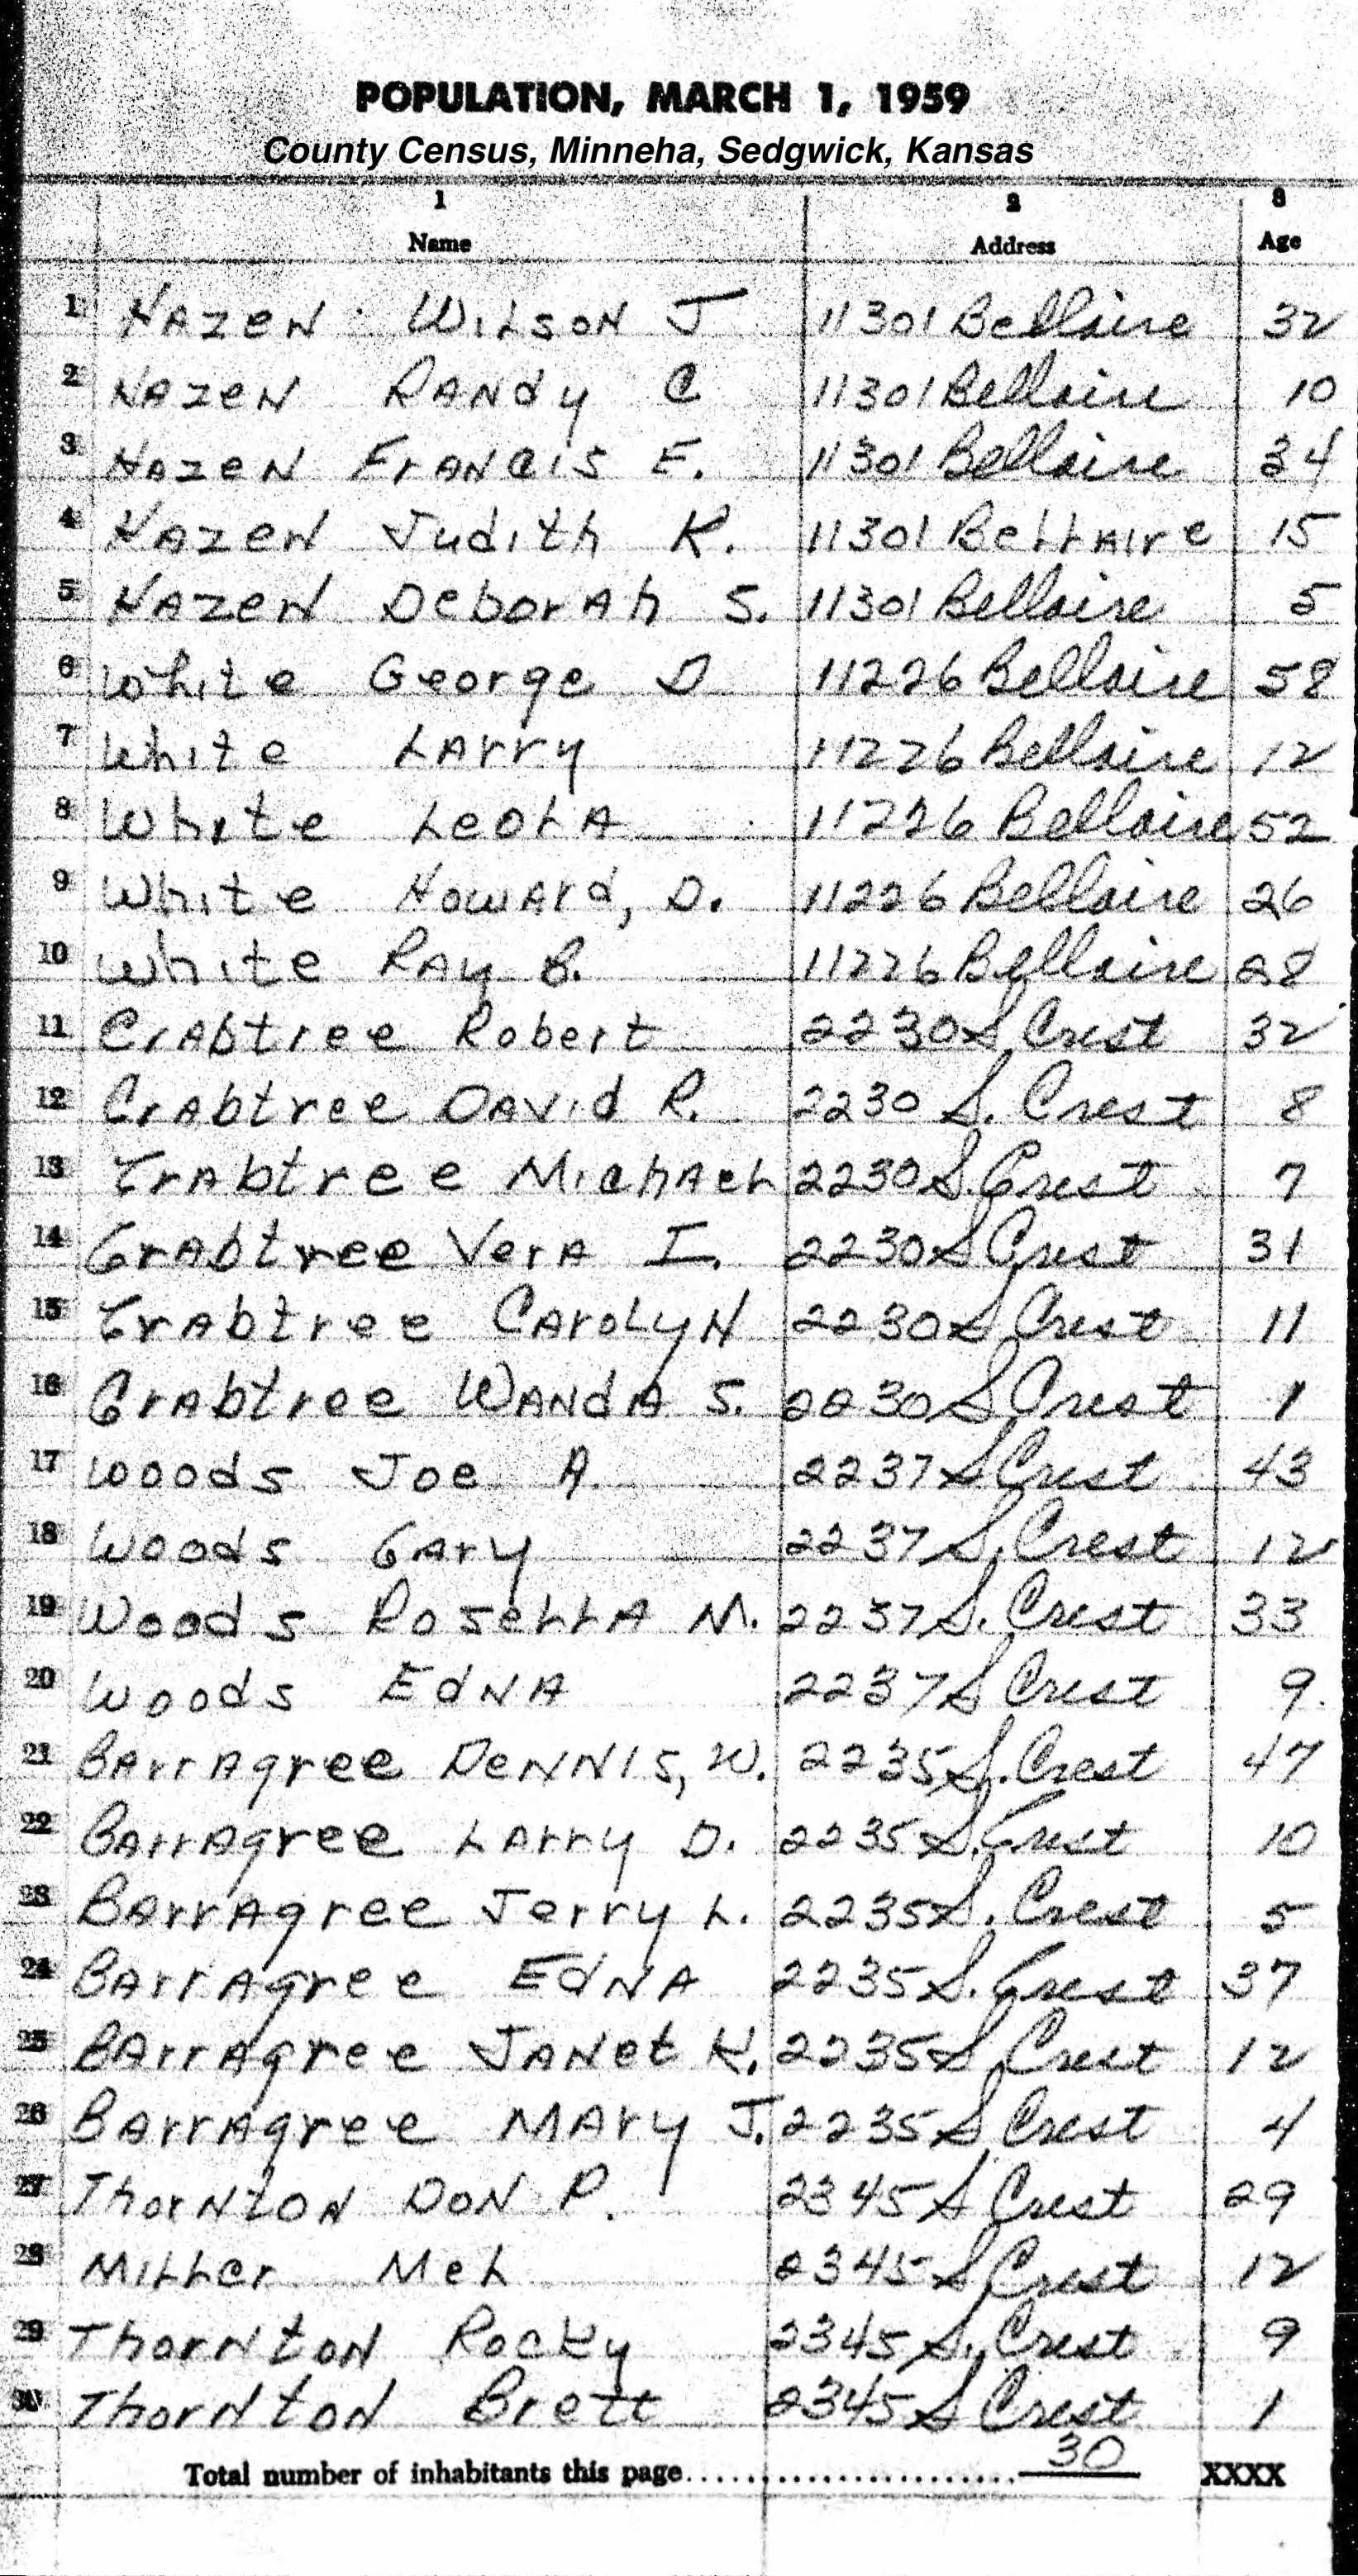 POPULATION, MARCH 1, 1959
County Census, Minneha, Sedgwick, Kansas
1 2 3
Name Address Age
1 Hazen Wilson J 11301 Bellaire 32
2 Hazen Randy C 11301 Bellaire 10
3 Hazen Francis E. 11301 Bellaire 34
4 Hazen Judith K. 11301 Bellaire 15
5 Hazen Deborah S. 11301 Bellaire 5
6 White George D 11226 Bellaire 58
7 White Larry 11226 Bellaire 12
8 White Leola 11226 Bellaire 52
9 White Howard, D. 11226 Bellaire 26
10 White Ray B. 11226 Bellaire 28
11 Crabtree Robert 2230 S. Crest 32
12 Crabtree David R. 2230 S. Crest 8
13 Crabtree Michael 2230 S. Crest 7
14 Crabtree Vera I. 2230 S Crest 31
15 Crabtree Carolyn 2230 S. Crest 11
16 Crabtree Wanda S. 2230 S Crest 1
17 Woods Joe A. 2237 S Crest 43
18 Woods Gary 2237 S. Crest 12
19 Woods Rosella M. 2237 S. Crest 33
20 Woods Edna 2237 S Crest 9
21 Barragree Dennis, W. 2235 S. Crest 47
22 Barragree Larry D. 2235 S. Crest 10
23 Barragree Jerry L. 2235 S. Crest 5
24 Barragree Edna 2235 S. Crest 37
25 Barragree Janet K. 2235 S. Crest 12
26 Barragree Mary J. 2235 S. Crest 4
27 Thornton Don P. 2345 S Crest 29
28 Miller Mel 2345 S Crest 12
29 Thornton Rocky 2345 S. Crest 9
30 Thornton Brett 2345 S Crest 1
Total number of inhabitants this page........................ 30 XXXX